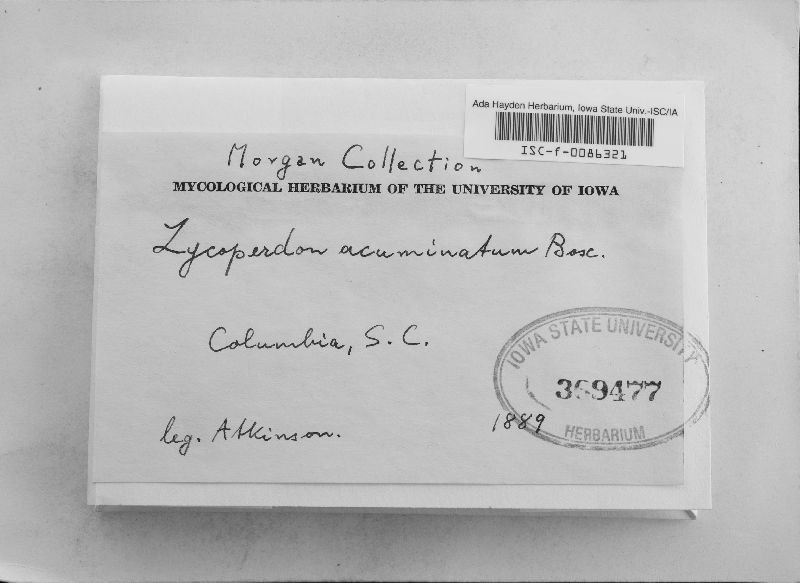 Ada Hayden Herbarium, Iowa State Univ.-ISC/IA
ISC-f-0086321
Morgan Collection
MYCOLOGICAL HERBARIUM OF THE UNIVERSITY OF IOWA
Lycoperdon acuminatum Bosc.
Columbia, S.C.
IOWA STATE UNIVERSITY
369477
HERBARIUM
leg. Atkinson.
1889